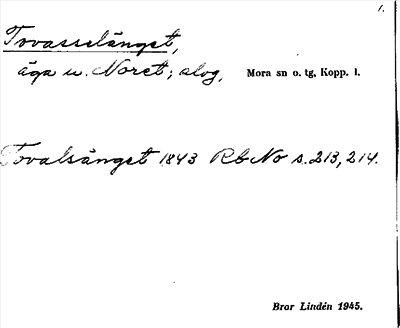 1.
Tovasselänget,
äga u. Noret; slog,
Mora sn o. tg, Kopp. l.
Tovalsänget 1843 RbNo s. 213, 214.
Bror Lindén 1945.